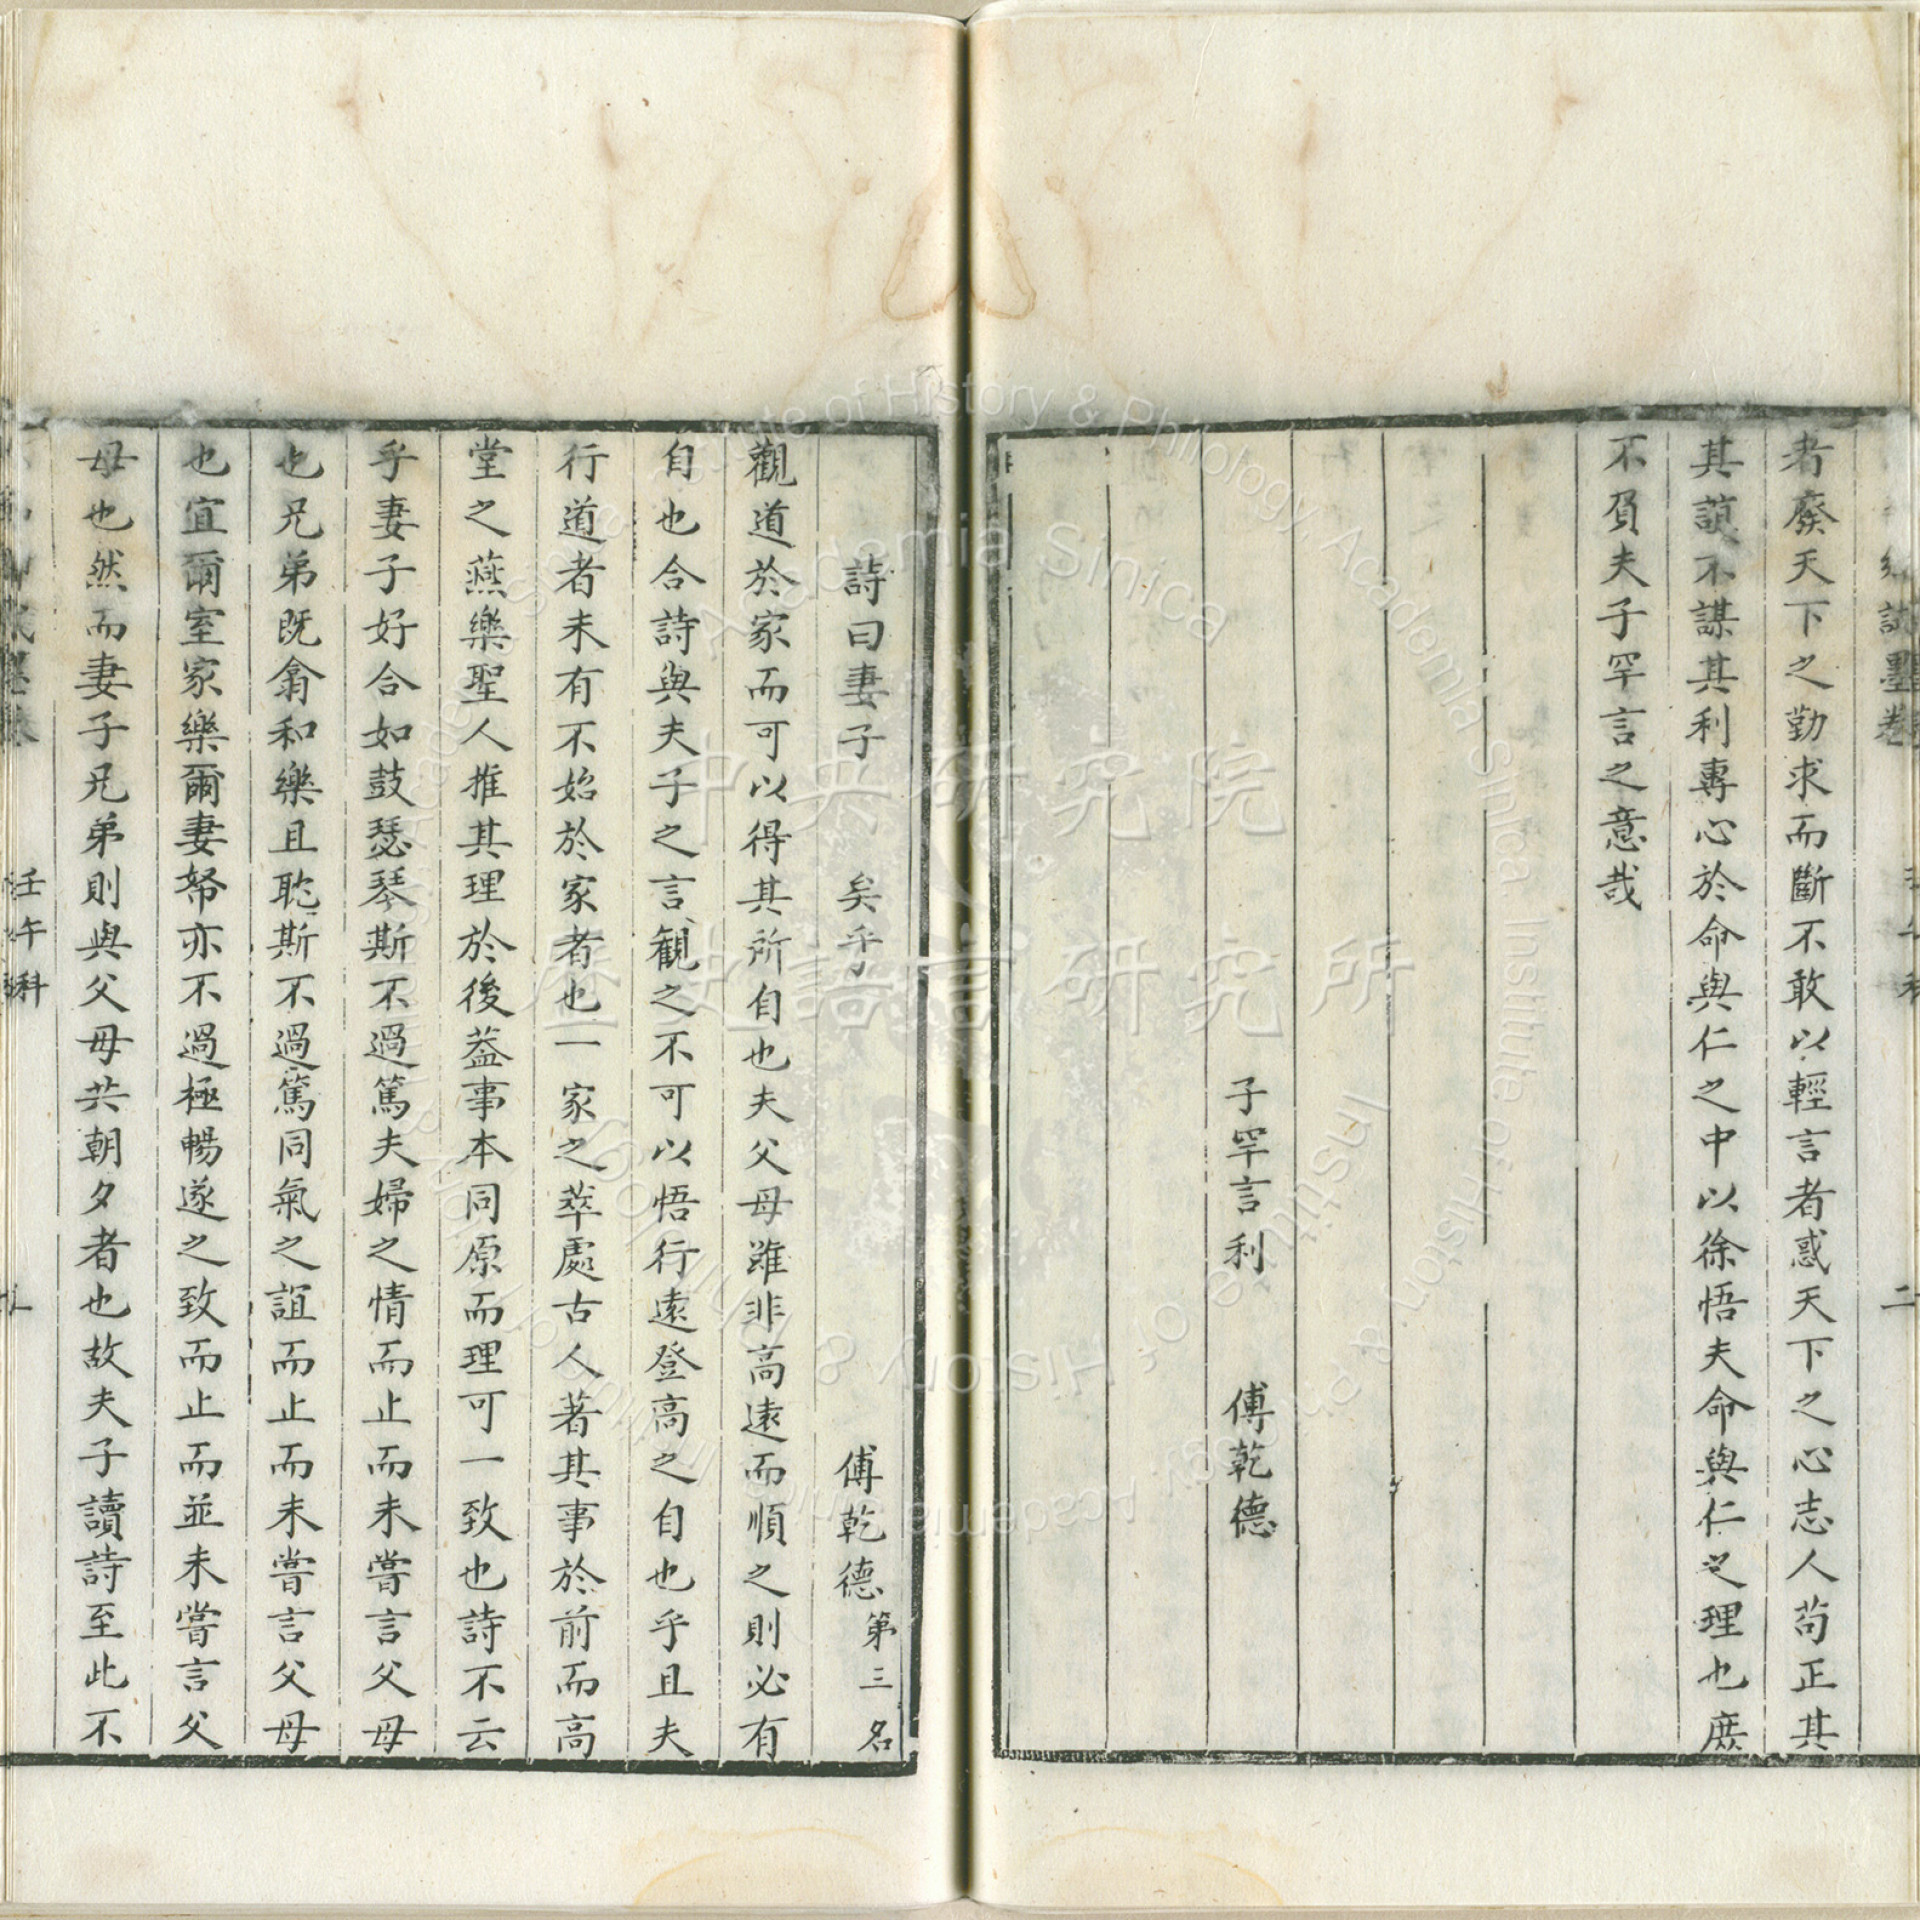 者廢天下之勤求而斷不敢以輕言者惑天下之心志人苟正其
其誼不謀其利專心於命與仁之中以徐悟夫命與仁之理也庶
不負夫子罕言之意哉
子罕言利 傅乾德
詩曰妻子 矣乎 傅乾德 第三名
觀道於家而可以得其所自也夫父母雖非高遠而順之則必有
自也合詩與夫子之言觀之不可以悟行遠登高之自也乎且夫
行道者未有不始於家者也一家之萃處古人著其事於前而高
堂之燕樂聖人推其理於後蓋事本同原而理可一致也詩不云
乎妻子好合如鼓瑟琴斯不過篤夫婦之情而止而未嘗言父母
也兄弟既翕和樂且耽斯不過篤同氣之誼而止而未嘗言父母
也宜爾室家樂爾妻帑亦不過極暢遂之致而止而並未嘗言父
母也然而妻子兄弟則與父母共朝夕者也故夫子讀詩至此不
壬午科
中央研究院
歷史語言研究所
Institute of History & Philology, Academia Sinica